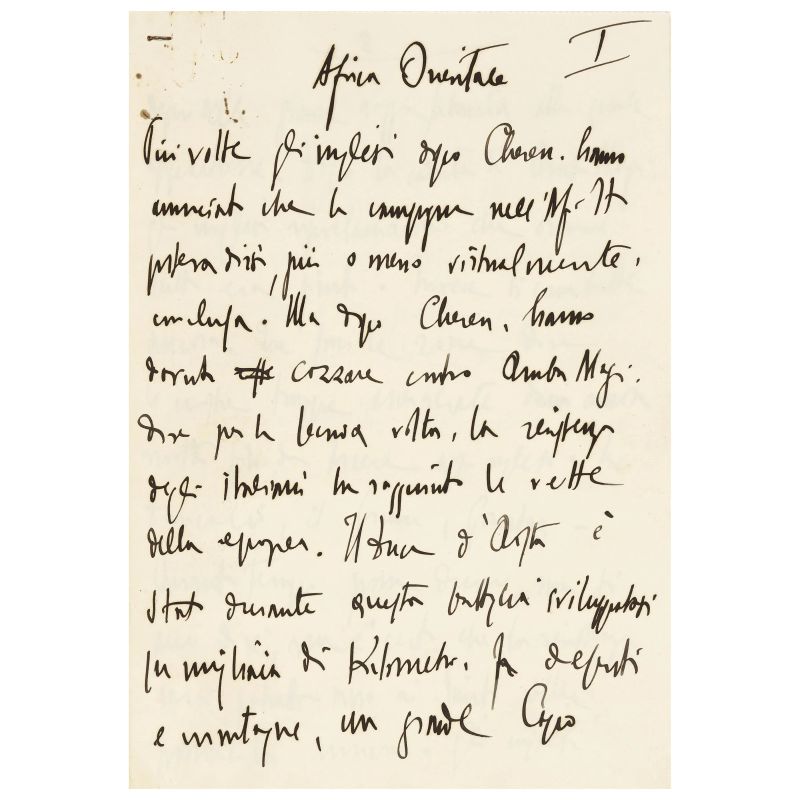 I
Africa Orientale
Più volte gli inglesi dopo Cheren, hanno
annunciato che la campagna nell'Af. It
poteva dirsi, più o meno virtualmente,
conclusa. Ma dopo Cheren, hanno
dovuto cozzare contro Amba Alagi.
dove per la volta, la resistenza
degli italiani ha raggiunto le vette
della epopea. Il duca d'Aosta è
stato durante questa battaglia sviluppatasi
su migliaia di Kilometri, fra deserti
e montagne, un grande Capo